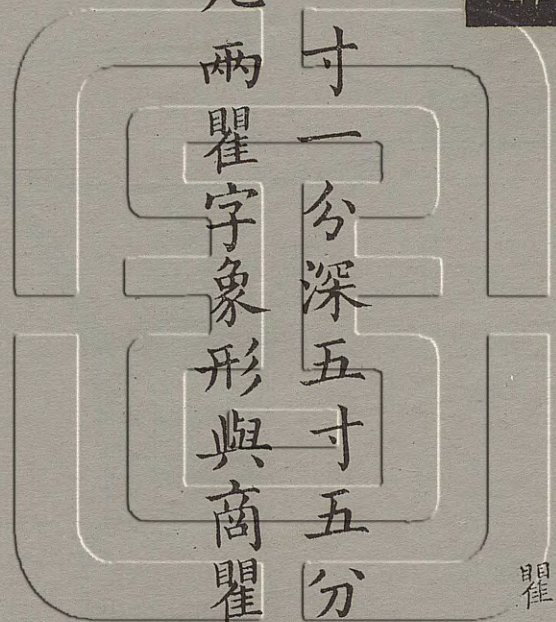 瞿
寸一分深五寸五分
兩瞿字象形與商瞿